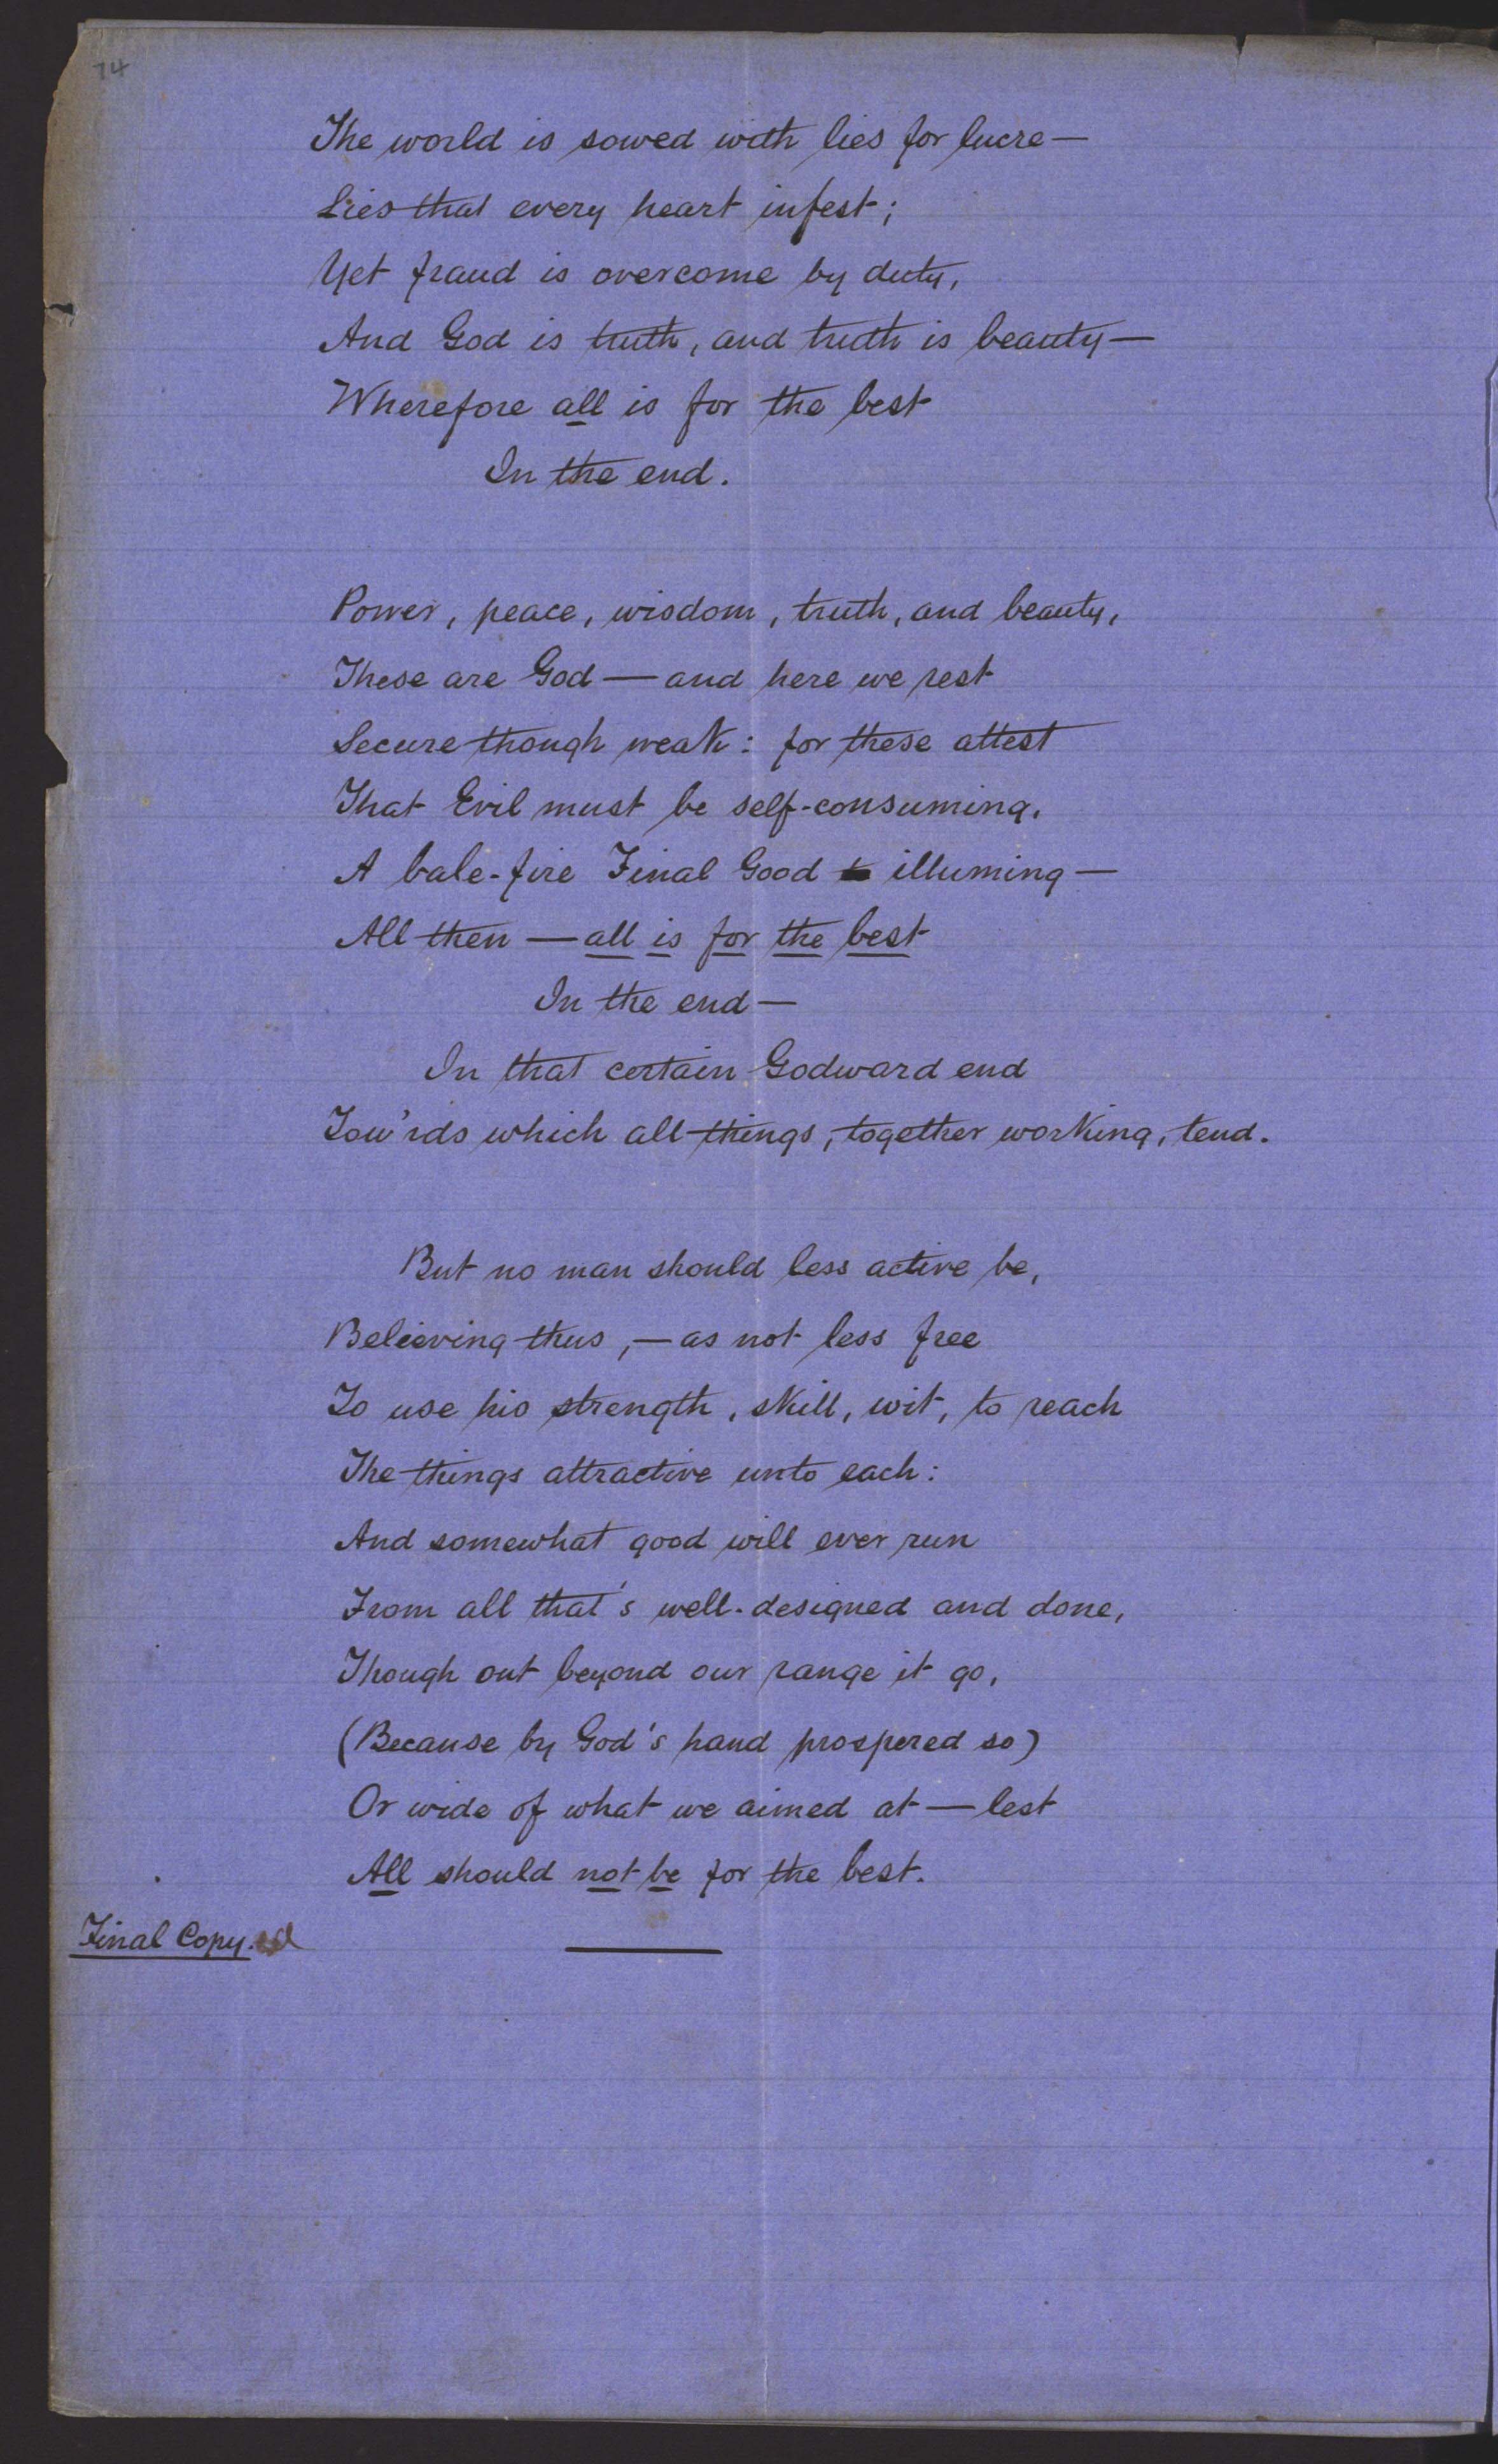 74
The world is sowed with lies for lucre—
Lies that every heart infest;
Yet fraud is overcome by duty,
And God is truth, and truth is beauty—
Wherefore all is for the best
In the end.
Power, peace, wisdom, truth, and beauty,
These are God — and here we rest
Secure though weak: for these attest
That Evil must be self-consuming,
A bale-fire Final Good illuming—
All then — all is for the best
In the end—
In that certain Godward end
Tow'rds which all things, together working, tend.
But no man should less active be,
Believing thus, — as not less free
To use his strength, skill, wit, to reach
The things attractive unto each:
And somewhat good will ever run
From all that's well-designed and done,
Though out beyond our range it go,
(Because by God's hand prospered so)
Or wide of what we aimed at — lest
All should not be for the best.
Final Copy.